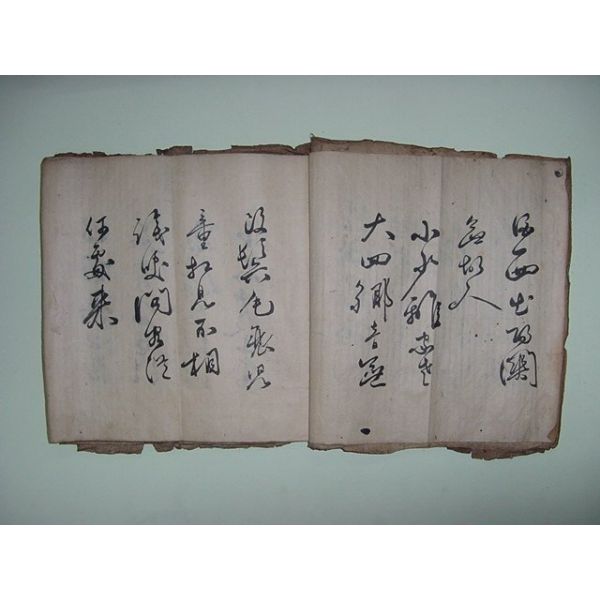 酒西出陽関
無故人
小少離家老
大回鄉音無
改鬢毛衰児
童相見不相
識笑問客從
何處来